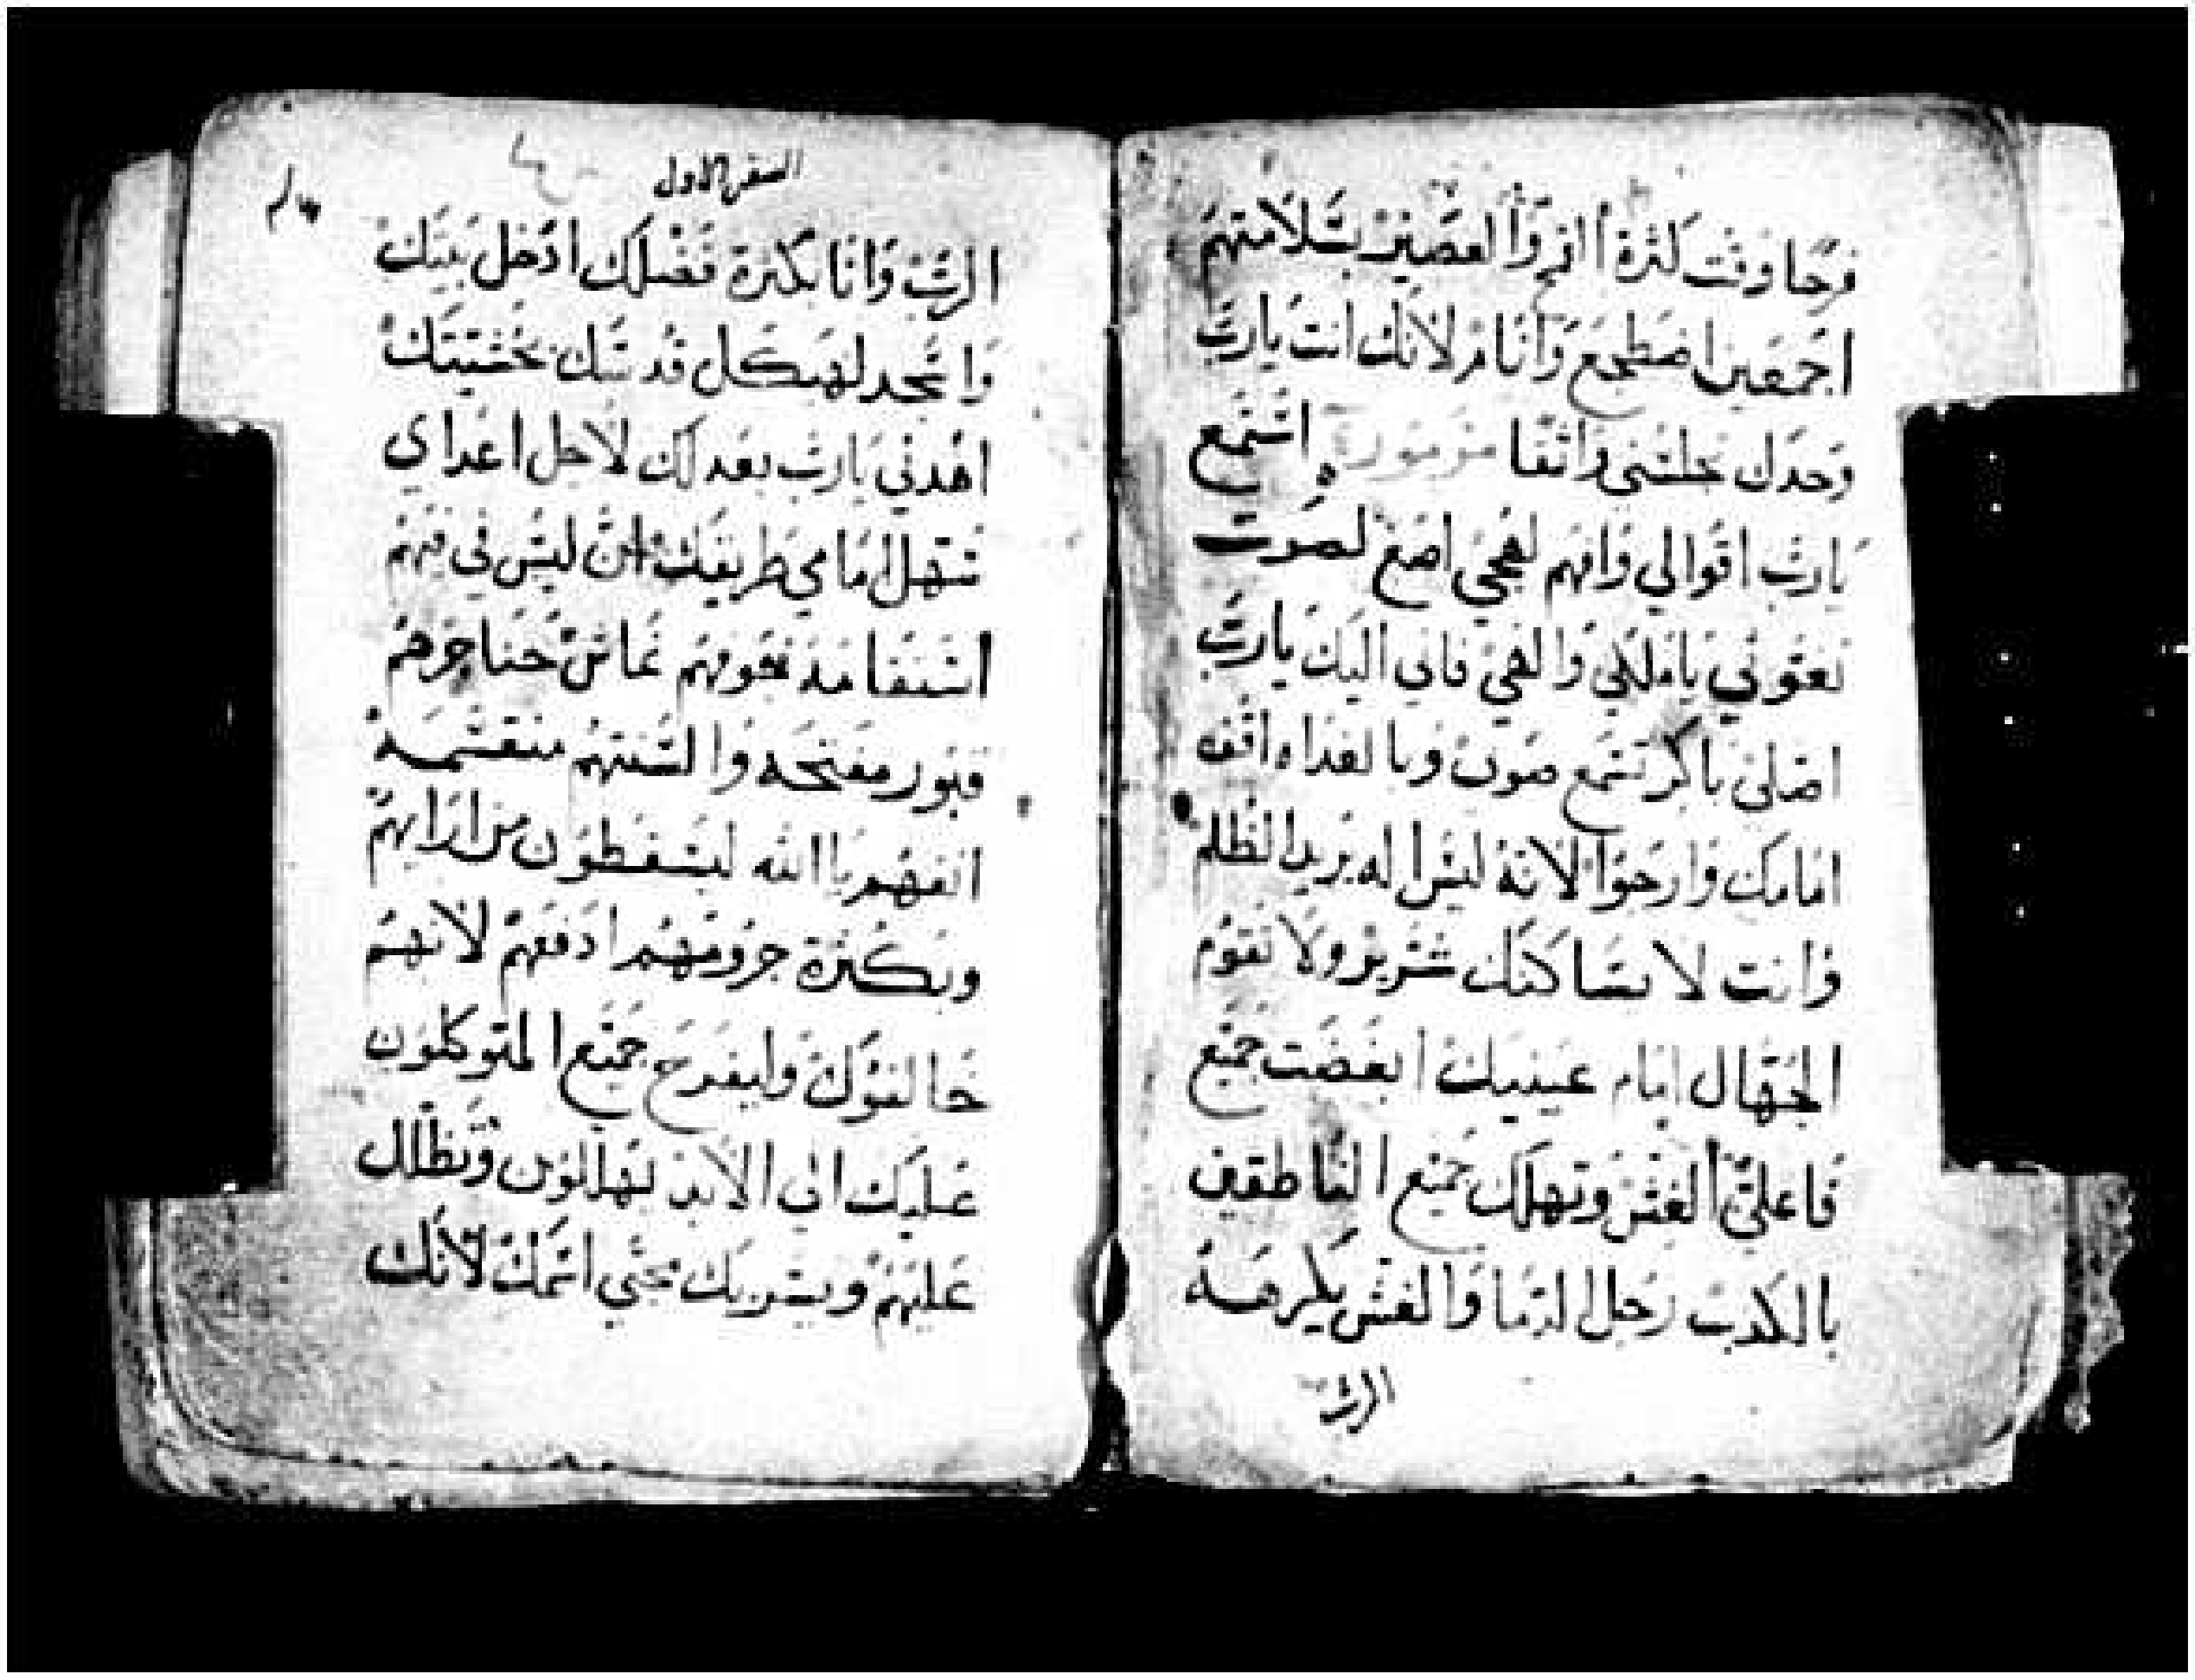 فرحا وقت كثرة القمح والعصير بسلامتهم
اجمعين اضطجع وانام لانك انت يارب
وحدك خلتني واثقا مزمور ه استمع
يارب اقوالي وافهم لهجي اصغ لصوت
تغوثي ياملكي والهي فاني اليك يارب
اصلى باكر تستمع صوتى وبالغداه اقف
امامك وارجوا لانه ليس اله يريد الظلم
وانت لا يساكنك شرير ولا تقوم
الجهال امام عينيك ابغضت جميع
فاعلي الغش وتهلك جميع الناطقين
بالكدب رجل الدما والغش يكرهه
الرب
السفر الاول
الرب وانا بكثرة فضلك ادخل بيتك
واسجد لهيكل قدسك بخشيتك
اهدني يارب بعدلك لاجل اعداى
تسهل امامي طريقك لان ليس في فمهم
قبور مفتحه والسنتهم منقسمة
انقمهم يا الله ليسقطون من ارايهم
وبكثرة جرومهم ادفعهم لانهم
خالفوك وليفرح جميع المتوكلون
عليك الى الابد يهللون وتظلل
عليهم ويسر بك محبي اسمك لانك